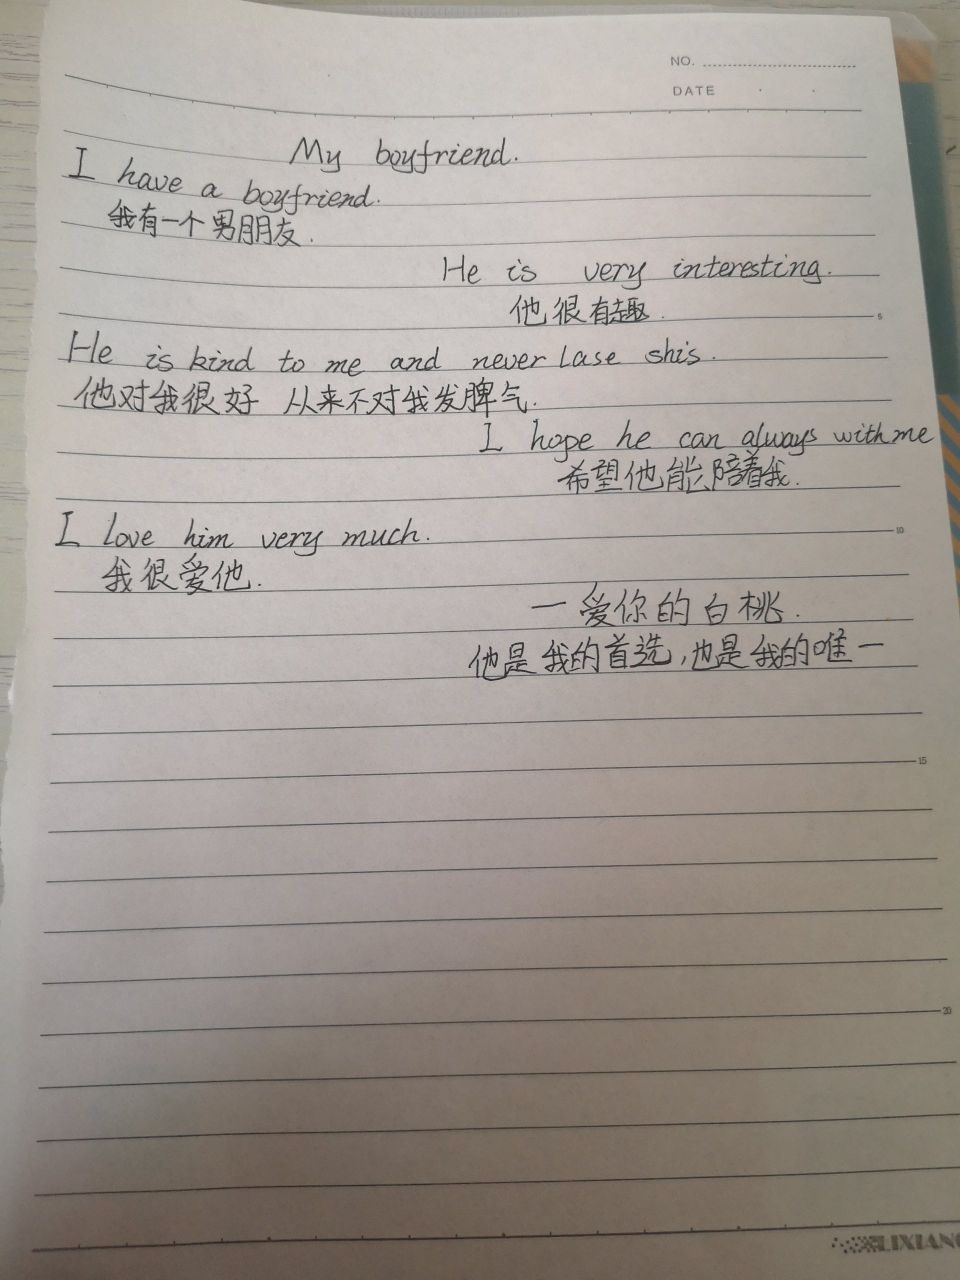 NO.
DATE
My boyfriend.
I have a boyfriend.
我有一个男朋友.
He is very interesting.
他很有趣.
5
He is kind to me and never lase shis.
他对我很好 从来不对我发脾气.
I hope he can always with me
希望他能陪着我.
I love him very much.
10
我很爱他.
一爱你的白桃.
他是我的首选,也是我的唯一
15
20
LIXIANG